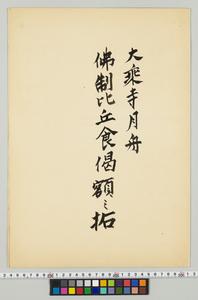 大乘寺月舟
佛制比丘食偈額之拓